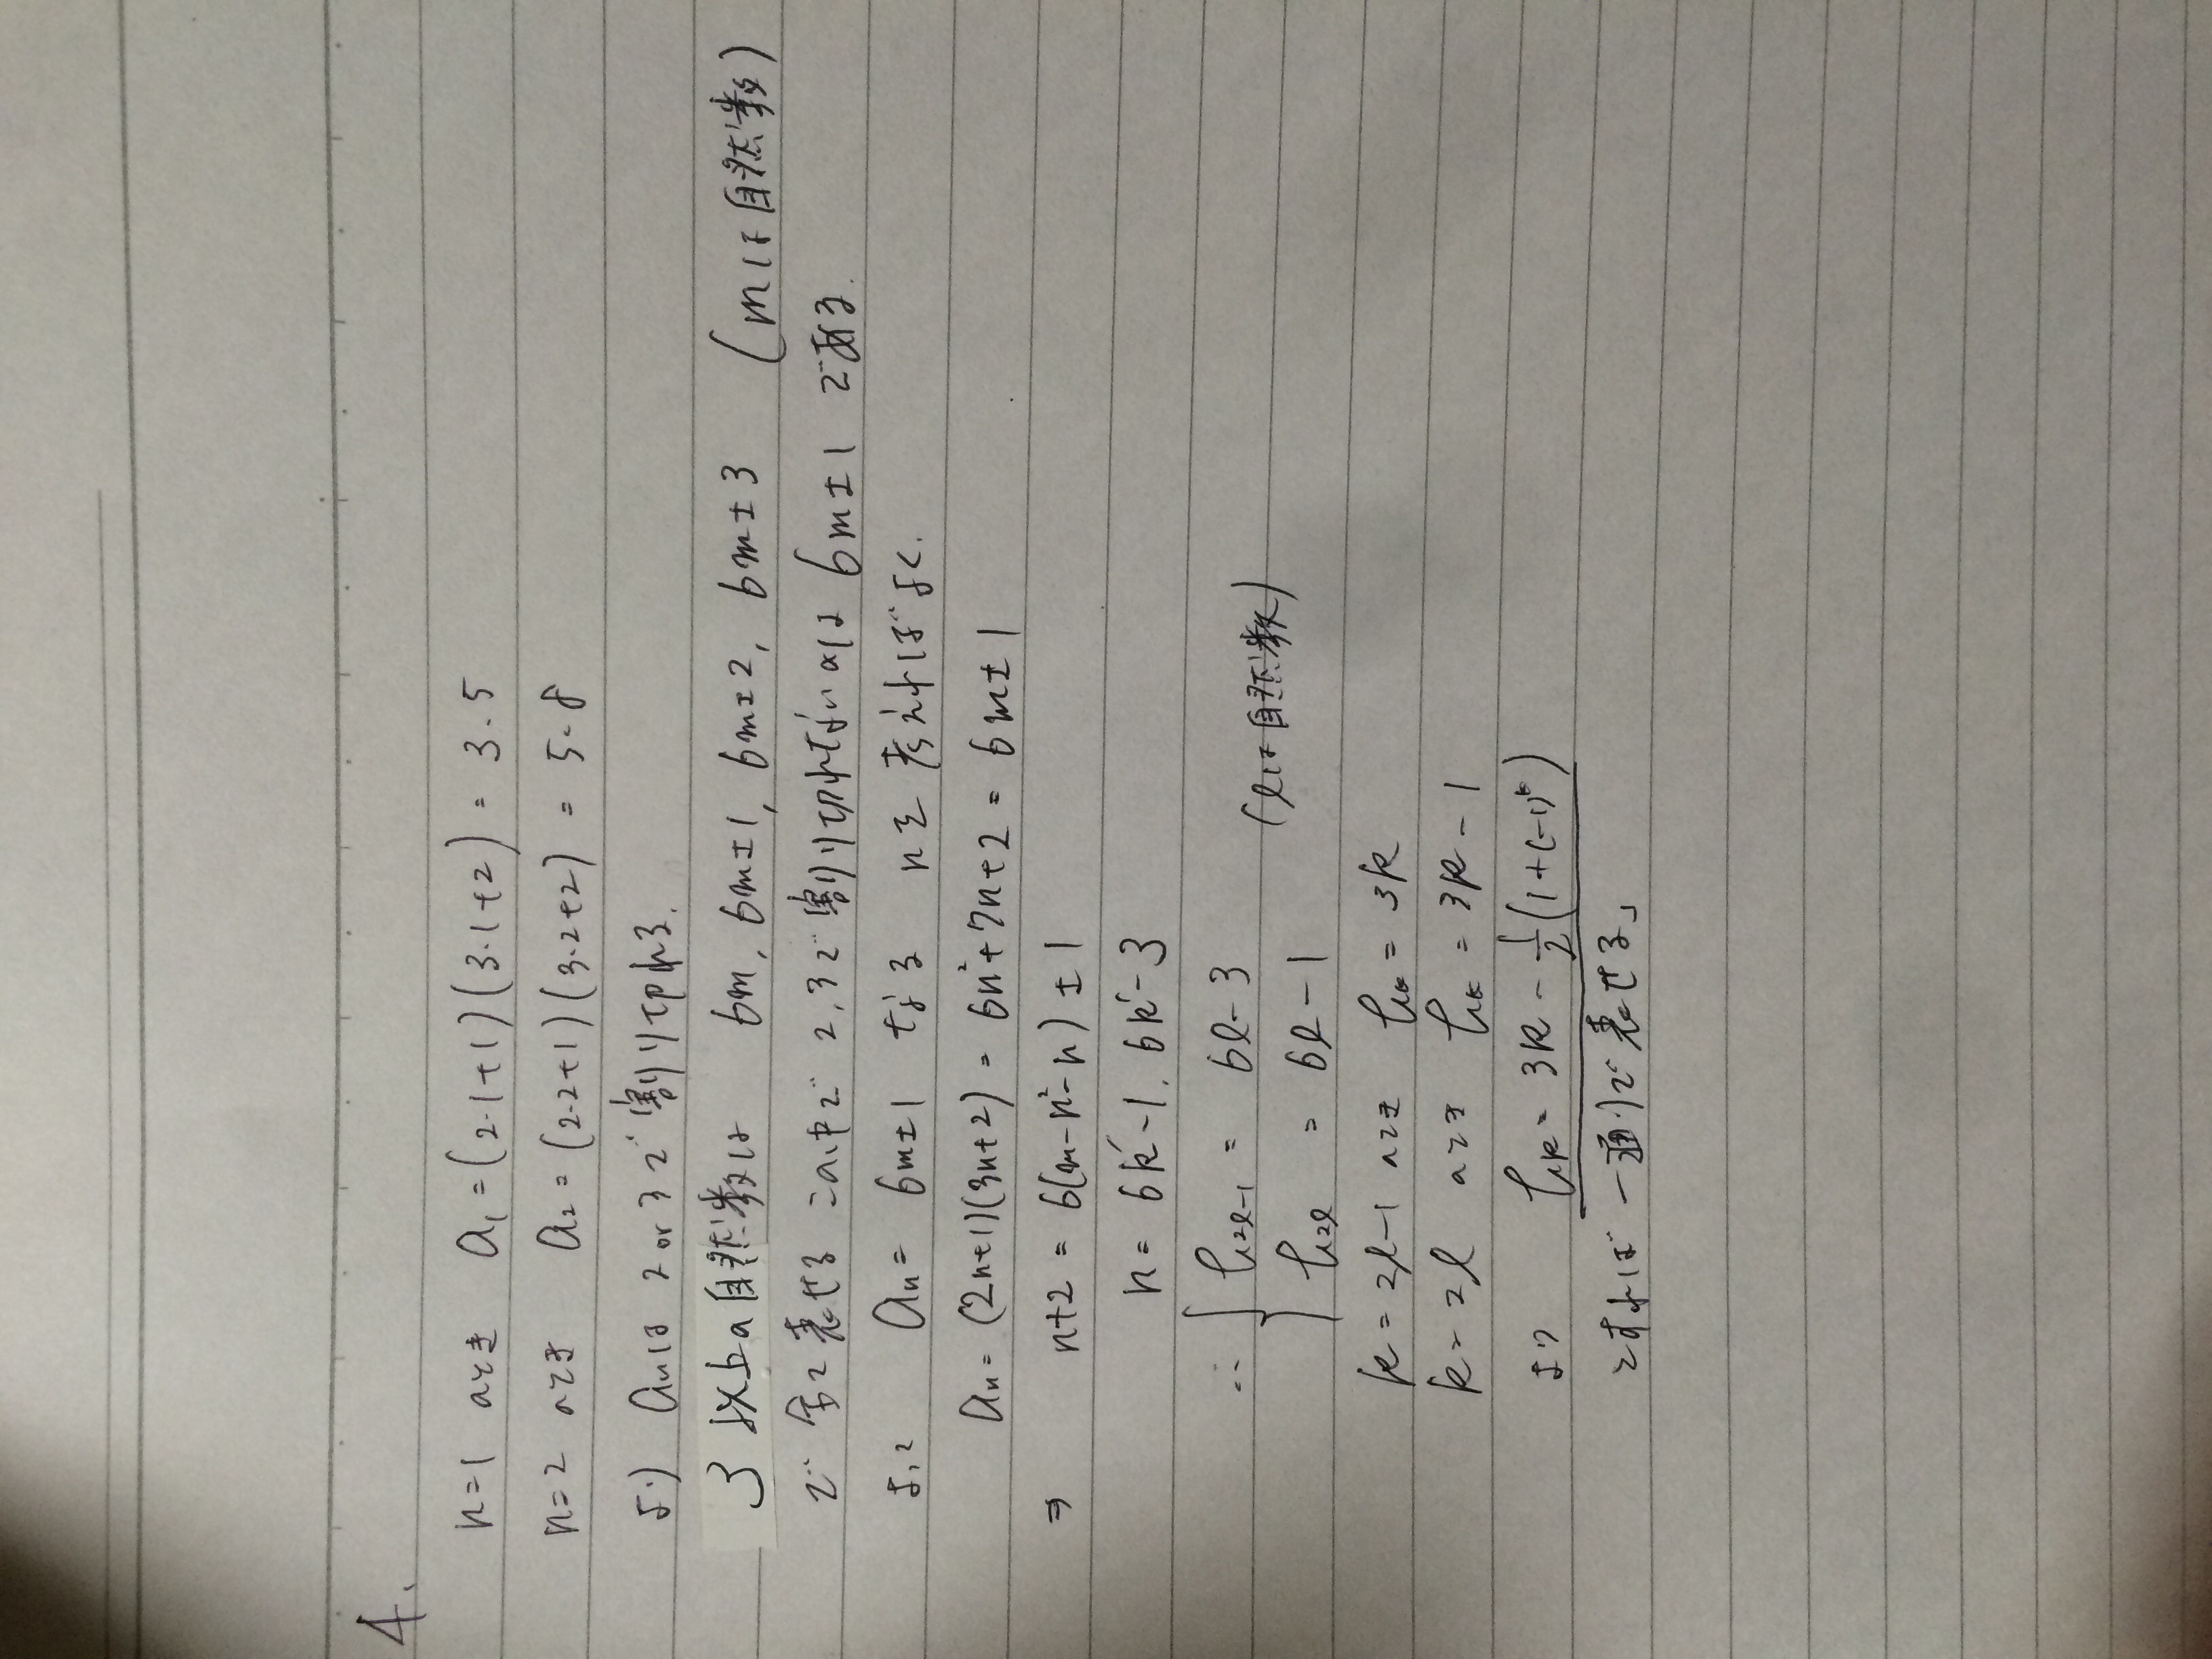 4.
n=1 のとき a₁=(2・1+1)(3・1+2) = 3・5
n=2 のとき a₂=(2・2+1)(3・2+2) = 5・8
より aₙは 2 or 3 で 割り切れる.
3 以上の自然数は 6m, 6m±1, 6m±2, 6m±3 (mは自然数)
で 全て表せる この中で 2,3で 割り切れないのは 6m±1 である.
よって aₙ= 6m±1 となる nを 考えればよく.
aₙ=(2n+1)(3n+2) = 6n²+7n+2 = 6m±1
⇒ n+2 = 6(m-n²-n) ±1
n = 6k'-1, 6k'-3
∴ { b₂ₗ₋₁ = 6l-3
b₂ₗ = 6l-1 (lは自然数)
k = 2l-1 のとき bₖ = 3k
k = 2l のとき bₖ = 3k-1
よって bₖ = 3k - 1/2 (1+(-1)ᵏ)
とすれば 一通りで表せる」